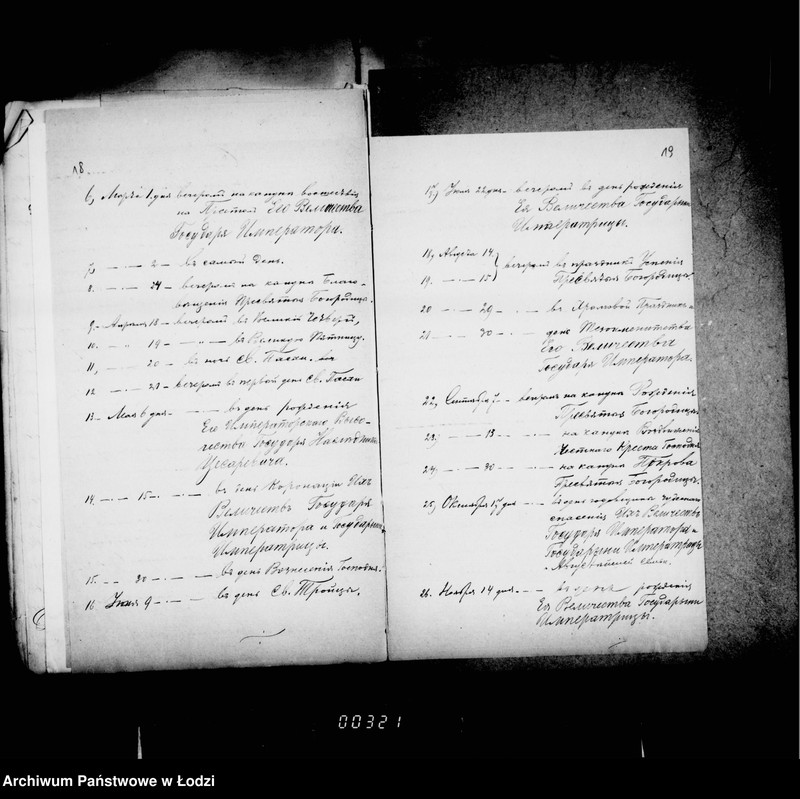 18
6, Марта 1 дня вечеромъ на канунѣ восшествія
на Престолъ Его Величества
Государя Императора.
7, — 2 — въ самый день.
8. — 24 — вечеромъ на канунѣ Благо-
вѣщенія Пресвятыя Богородицы.
9. Апрѣля 18 — вечеромъ въ Великій Четвергъ,
10. — „ 19 — „ — въ Великую Пятницу.
11, — 20 — въ ночь Св. Пасхи.
12 — 21 — вечеромъ въ первой день Св. Пасхи
13. Мая 6 дня — въ день рожденія
Его Императорскаго Высо-
чества Государя Наслѣдника
Цесаревича.
14. — 15 — въ день Коронаціи Ихъ
Величествъ Государя
Императора и Государыни
Императрицы.
15. — 30 — въ день Вознесенія Господня.
16 Іюня 9 — въ день Св. Тройцы.
19
17, Іюля 22 дня — вечеромъ въ день рожденія
Ея Величества Государыни
Императрицы.
18, Августа 14.
19. — 15
вечеромъ въ праздникъ Успенія
Пресвятыя Богородицы
20 — 29 — въ Храмовой Праздникъ
21 — 30 — день Тезоименитства
Его Величества
Государя Императора.
22, Сентября 7. — вечеромъ на канунѣ Рождения
Пресвятыя Богородицы
23, — 13 — на канунѣ Воздвиженія
Честнаго Креста Господня
24, — 30 — на канунѣ Покрова
Пресвятыя Богородицы.
25, Октября 17 дня — въ день годовщины чудеснаго
спасенія Ихъ Величествъ
Государя Императора и
Государыни Императрицы
и Августѣйшей семьи.
26. Ноября 14 дня. — въ день рожденія
Ея Величества Государыни
Императрицы.
00321
Archiwum Państwowe w Łodzi